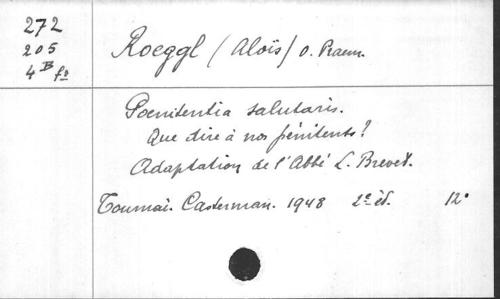 272
205
4 B fº
Roeggl (Aloïs) O. Praem.
Poenitentia salutaris.
Que dire à nos pénitents?
Adaptation de l'Abbé L. Brevet.
Tournai. Casterman. 1948 2e éd. 12º